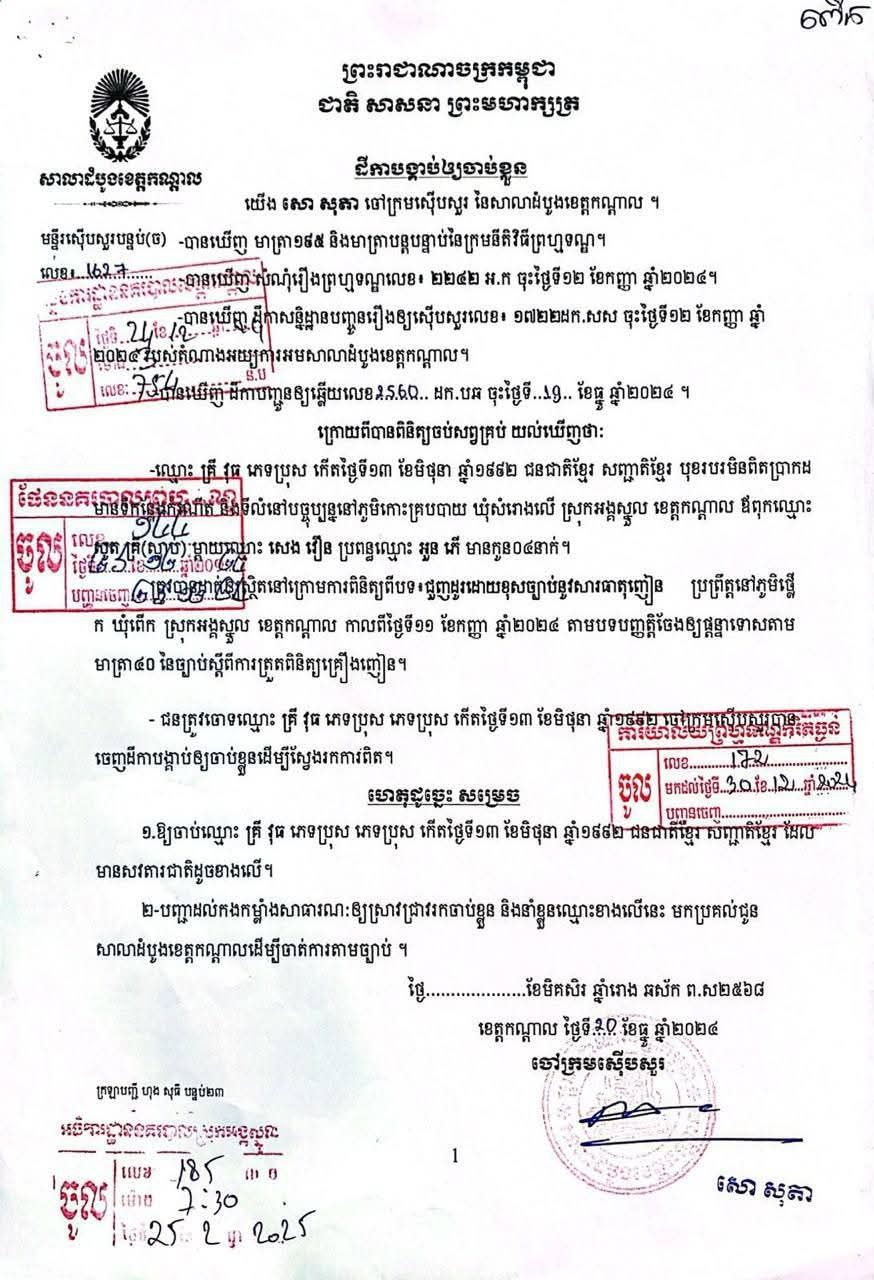 ព្រះរាជាណាចក្រកម្ពុជា
ជាតិ សាសនា ព្រះមហាក្សត្រ
សាលាដំបូងខេត្តកណ្ដាល
ដីកាបង្គាប់ឲ្យចាប់ខ្លួន
យើង សោ សុតា ចៅក្រមស៊ើបសួរ នៃសាលាដំបូងខេត្តកណ្ដាល ។
មន្ទីរស៊ើបសួរបន្ទប់(ច) -បានឃើញ មាត្រា១៩៥ និងមាត្រាបន្តបន្ទាប់នៃក្រមនីតិវិធីព្រហ្មទណ្ឌ។
លេខ៖..1627...... -បានឃើញ សំណុំរឿងព្រហ្មទណ្ឌលេខ៖ ២២៤២ អ.ក ចុះថ្ងៃទី១២ ខែកញ្ញា ឆ្នាំ២០២៤។
-បានឃើញ ដីកាសន្និដ្ឋានបញ្ជូនរឿងឲ្យស៊ើបសួរលេខ៖ ១៧២២ដក.សស ចុះថ្ងៃទី១២ ខែកញ្ញា ឆ្នាំ
២០២៤ របស់តំណាងអយ្យការអមសាលាដំបូងខេត្តកណ្ដាល។
ចូល
ថ្ងៃទី..24 ខែ.12
លេខ:..754
ន.ប
-បានឃើញ ដីកាបញ្ជូនឲ្យឆ្លើយលេខ2560.. ដក.បឆ ចុះថ្ងៃទី..19.. ខែធ្នូ ឆ្នាំ២០២៤ ។
ក្រោយពីបានពិនិត្យចប់សព្វគ្រប់ យល់ឃើញថា:
-ឈ្មោះ គ្រី វុធ ភេទប្រុស កើតថ្ងៃទី១៣ ខែមិថុនា ឆ្នាំ១៩៩២ ជនជាតិខ្មែរ សញ្ជាតិខ្មែរ មុខរបរមិនពិតប្រាកដ
មានទីកន្លែងកំណើត និងទីលំនៅបច្ចុប្បន្ននៅភូមិកោះគ្របបាយ ឃុំសំរោងលើ ស្រុកអង្គស្នួល ខេត្តកណ្ដាល ឪពុកឈ្មោះ
សួត គ្រី(ស្លាប់) ម្ដាយឈ្មោះ សេង វឿន ប្រពន្ធឈ្មោះ អួន ភើ មានកូន០៤នាក់។
ចូល
លេខ 944
បញ្ជូនចេញ
ត្រូវបានដាក់ឲ្យស្ថិតនៅក្រោមការពិនិត្យពីបទ៖ជួញដូរដោយខុសច្បាប់នូវសារធាតុញៀន ប្រព្រឹត្តនៅភូមិផ្លើ
ក ឃុំពើក ស្រុកអង្គស្នួល ខេត្តកណ្ដាល កាលពីថ្ងៃទី១១ ខែកញ្ញា ឆ្នាំ២០២៤ តាមបទបញ្ញត្តិចែងឲ្យផ្ដន្ទាទោសតាម
មាត្រា៤០ នៃច្បាប់ស្ដីពីការត្រួតពិនិត្យគ្រឿងញៀន។
- ជនត្រូវចោទឈ្មោះ គ្រី វុធ ភេទប្រុស ភេទប្រុស កើតថ្ងៃទី១៣ ខែមិថុនា ឆ្នាំ១៩៩២ ចៅក្រមស៊ើបសួរបាន
ចេញដីកាបង្គាប់ឲ្យចាប់ខ្លួនដើម្បីស្វែងរកការពិត។
ការិយាល័យព្រហ្មទណ្ឌកំរិតធ្ងន់
ចូល
លេខ........172........
មកដល់ថ្ងៃទី..30.ខែ..12...ឆ្នាំ 2024
បញ្ជូនចេញ........
ហេតុដូច្នេះ សម្រេច
១.ឱ្យចាប់ឈ្មោះ គ្រី វុធ ភេទប្រុស ភេទប្រុស កើតថ្ងៃទី១៣ ខែមិថុនា ឆ្នាំ១៩៩២ ជនជាតិខ្មែរ សញ្ជាតិខ្មែរ ដែល
មានសវតារជាតិដូចខាងលើ។
២-បញ្ជាដល់កងកម្លាំងសាធារណៈឲ្យស្រាវជ្រាវរកចាប់ខ្លួន និងនាំខ្លួនឈ្មោះខាងលើនេះ មកប្រគល់ជូន
សាលាដំបូងខេត្តកណ្ដាលដើម្បីចាត់ការតាមច្បាប់ ។
ថ្ងៃ....................ខែមិគសិរ ឆ្នាំរោង ឆស័ក ព.ស២៥៦៨
ខេត្តកណ្ដាល ថ្ងៃទី.20 ខែធ្នូ ឆ្នាំ២០២៤
ចៅក្រមស៊ើបសួរ
សោ សុតា
ក្រឡាបញ្ជី ហុង សុធី បន្ទប់២៣
អធិការដ្ឋាននគរបាលស្រុកអង្គស្នួល
ចូល
លេខ 185
ម៉ោង 7:30
ថ្ងៃទី 25 ខែ 2 ឆ្នាំ 2025
1